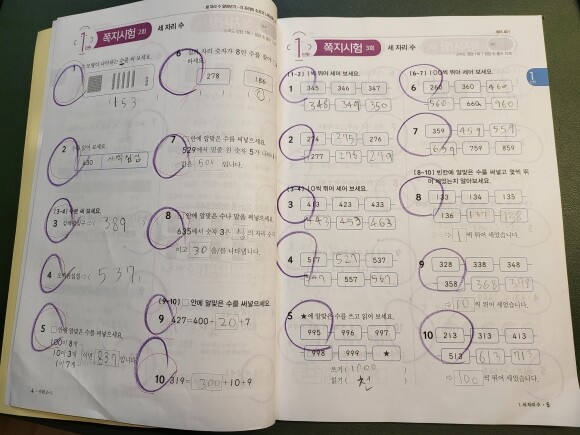 1 단원
쪽지시험 2회
세 자리 수
1
153
2
430
사백삼십
[3-4] 수로 써 보세요.
3
389
4
537
5 □안에 알맞은 수를 써넣으세요.
100이 8개
10이 3개 이면 837 입니다.
1이 7개
6
278
186
7 □안에 알맞은 수를 써넣으세요.
529에서 밑줄 친 숫자 5가 나타내는
값은 500 입니다.
8 □안에 알맞은 수나 말을 써넣으세요.
635에서 숫자 3은 십의 자리 숫자
이고 30 을/를 나타냅니다.
[9-10] □안에 알맞은 수를 써넣으세요.
9 427=400+20+7
10 319=300+10+9
4
1 단원
쪽지시험 3회
세 자리 수
[1-2] 1씩 뛰어 세어 보세요.
1 345 346 347
348 349 350
2 274 275 276
277 278 279
[3-4] 10씩 뛰어 세어 보세요.
3 413 423 433
443 453 463
4 517 527 537
547 557 567
5 ★에 알맞은 수를 쓰고 읽어 보세요.
995 996 997
998 999 ★
쓰기 ( 1000 )
읽기 ( 천 )
[6-7] 100씩 뛰어 세어 보세요.
6 260 360 460
560 660 960
7 359 459 559
659 759 859
[8-10] 빈칸에 알맞은 수를 써넣고 몇씩 뛰어 세었는지 알아보세요.
8 133 134 135
136 137 138
⇨ 1 씩 뛰어 세었습니다.
9 328 338 348
358 368 378
⇨ 10 씩 뛰어 세었습니다.
10 213 313 413
513 613 713
⇨ 100 씩 뛰어 세었습니다.
1
1. 세 자리 수 · 5